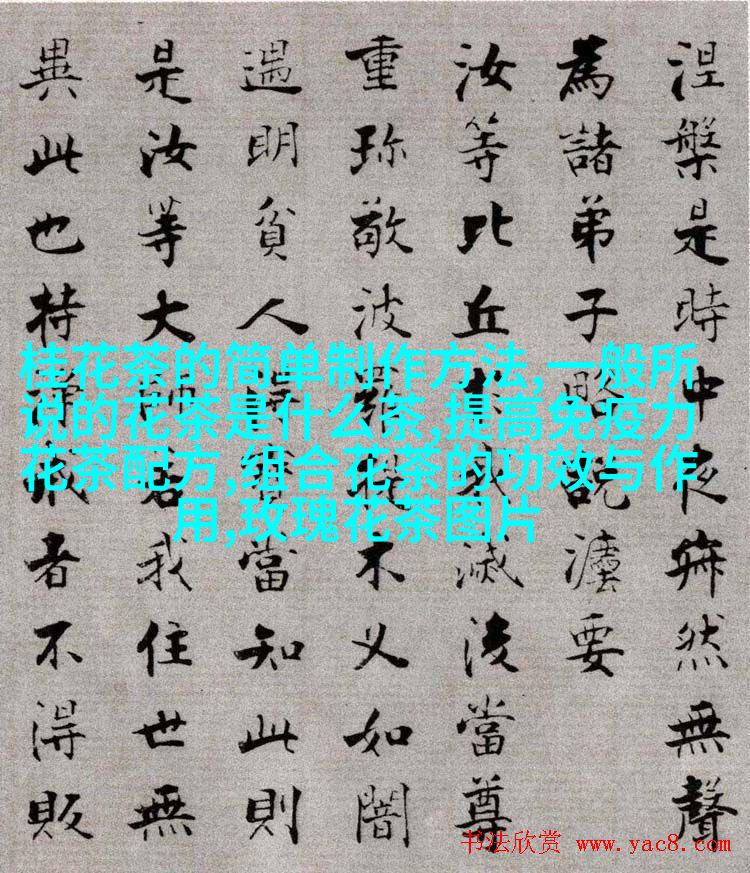 涅槃是時中夜寂然無聲
為諸弟子略說灋要
汝等比丘於我滅後當尊
重珍敬波羅提木叉如闇
遇明貧人得寶當知此則
是汝等大師若我住世無
異此也持淨戒者不得販
桂花茶的简单制作方法,一般所
说的花茶是什么茶,提高免疫力
花茶配方,组合花茶的功效与作
用,玫瑰花茶图片
书法欣赏 www.yac8.com